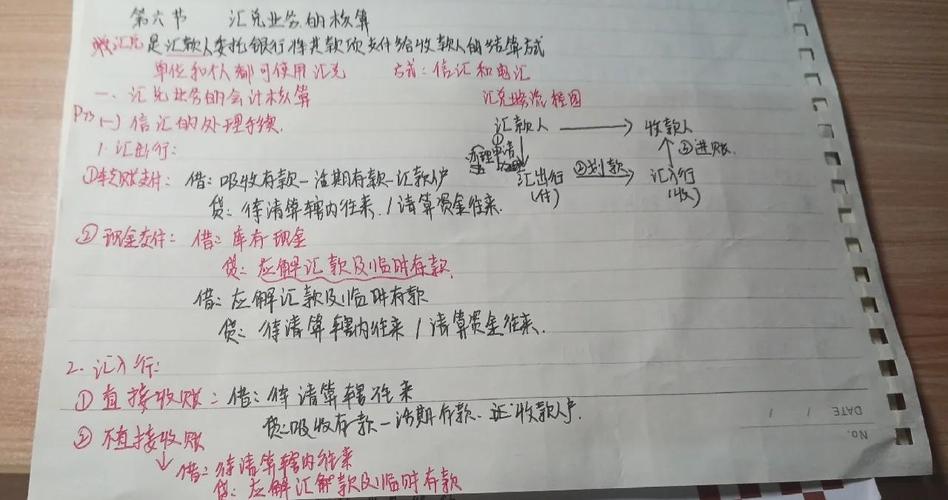 第六节 汇兑业务的核算
汇兑是汇款人委托银行将其款项支付给收款人的结算方式
单位和个人都可使用汇兑 方式:信汇和电汇
一、汇兑业务的会计核算 汇兑业务流程图
P73 (一)信汇的处理手续.
汇款人 → 收款人
1. 汇出行:
①办理申请
③进账.
①转账支付: 借:吸收存款—活期存款—汇款人户
汇出行 ②划款 汇入行
(付) (收)
贷:待清算辖内往来 / 清算资金往来.
②现金交付: 借:库存现金
贷:应解汇款及临时存款.
借:应解汇款及临时存款
贷:待清算辖内往来 / 清算资金往来.
2. 汇入行:
①直接收账: 借:待清算辖往来
贷:吸收存款—活期存款—收款人户.
②不直接收账
↓借:待清算辖内往来
贷:应解汇解款及临时存款
DATE / /
No.